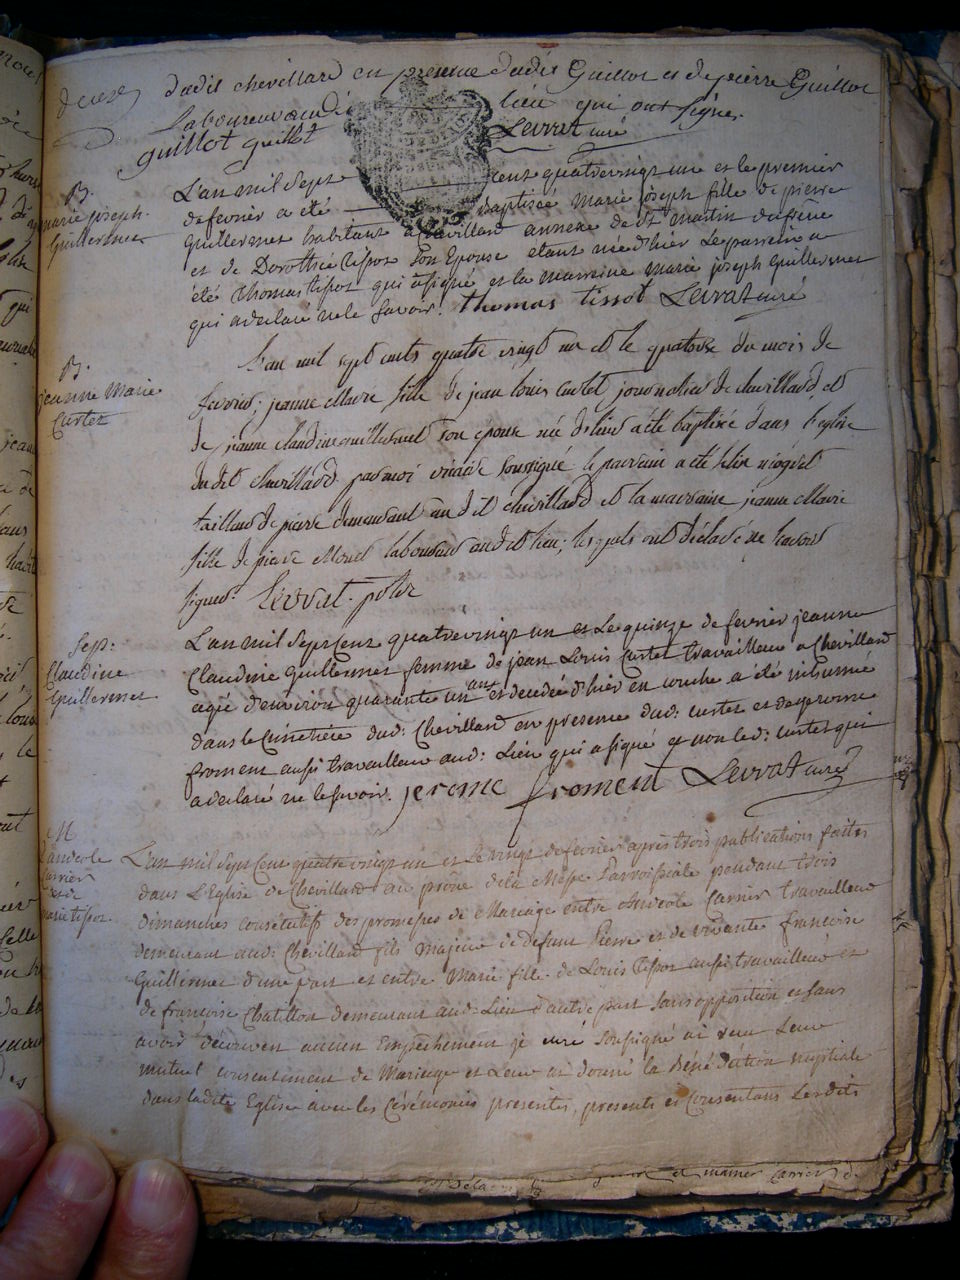 dudit chevillard en presence dudit Guillot et de pierre Guillot
Laboureur audit lieu qui ont signé.
guillot guillot Levrat curé
B.
marie joseph.
Guillermet
L'an mil sept cent quatrevingt une et le premier
de fevrier a été baptisée Marie joseph fille de pierre
guillermet habitant a Chevillard annexe de St martin
et de Dorothée tissot son Epouse etant née d'hier Le parrein a
été Thomas tissot qui a signé et la marreine marie joseph Guillermet
qui a declaré ne le savoir. thomas tissot Levrat curé
B.
jeanne Marie
Curtet
L'an mil sept cents quatre vingt un et le quatorze du mois de
fevrier, jeanne Marie fille de jean louis curtet journalier de chevillard, et
de jeanne claudine guillermet son epouse née d'hier a été baptisé dans l'eglise
du dit chevillard par moi vicaire soussigné le parrain a été
taillard de pierre demeurant au dit chevillard et la marraine jeanne Marie
fille de pierre laboureur audit lieu; lesquels ont déclaré ne savoir
signer. Levrat. ptre
Sep:
Claudine
Guillermet
L'an mil sept cent quatrevingt un et Le quinze de fevrier jeanne
Claudine guillermet femme de jean Louis Curtet travailleur a Chevillard
agée d'environ quarante un ans et decedée d'hier en couche a été inhumée
dans le Cimetiére dud: Chevillard en presence dud: curtet et de jerome
froment aussi travailleur aud: Lieu qui a signé et non led: curtet qui
a declaré ne le savoir. jerome froment Levrat curé
M
d'andéole
Carrier
et de
marie tissot.
L'an mil sept Cent quatre vingt un et Le vingt de fevrier après trois publications faites
dans L'Eglise de Chevillard au prône de la Messe Parroissiale pendant trois
dimanches consécutifs des promesses de Mariage entre Andéole Carrier travailleur
demeurant aud: Chevillard fils majeur de defunt Pierre et de vivante francoise
Guillermet d'une part et entre Marie fille de Louis Tissot aussi travailleur et
de francoise Chatillon demeurant aud: Lieu d'autre part sans opposition et sans
avoir découvert aucun Empêchement je curé soussigné ai reçu Leur
mutuel consentement de Mariage et Leur ai donné la Bénédiction nuptiale
dans ladite Eglise avec les Cérémonies presentes, presents et Consentans Lesdits